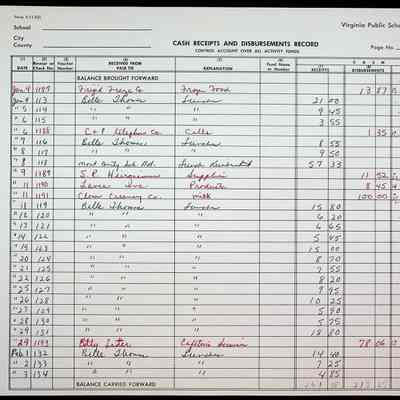 Form X-11-831
School
Virginia Public Scho
City
County
CASH RECEIPTS AND DISBURSEMENTS RECORD
CONTROL ACCOUNT OVER ALL ACTIVITY FUNDS
Page No.
(1) (2) (3) (4) (5) (6) (7) (8)
C A S H
DATE Receipt or Check No. Voucher Number RECEIVED FROM PAID TO EXPLANATION Fund Name or Number RECEIPTS DISBURSEMENTS
BALANCE BROUGHT FORWARD
Jan 4 1187 Frigid Freeze Co Frozen Food 13 87
Jan 4 113 Belle Thomas Lunches 21 00
" 5 114 " " " 9 45
" 6 115 " " " 3 55
" 6 1188 C & P Telephone Co. Calls 1 35
" 7 116 Belle Thomas Lunches 8 55
" 8 117 " " " 9 50
" 8 118 Mont County Sch. Bd. Lunch 57 33
" 8 1189 S. P. Supplies 11 52
" 11 1190 Produce 8 45
" 11 1191 Clover Creamery Co. milk 100 00
" 11 119 Belle Thomas Lunches 15 80
" 12 120 " " " 6 20
" 13 121 " " " 6 65
" 14 122 " " " 5 45
" 14 123 " " " 15 00
" 20 124 " " " 8 70
" 21 125 " " " 7 55
" 22 126 " " " 8 20
" 25 127 " " " 9 95
" 26 128 " " " 10 25
" 27 129 " " " 5 90
" 28 130 " " " 5 75
" 29 131 " " " 18 80
" 29 1193 Betty Lester Cafeteria 78 06
Feb 1 132 Belle Thomas Lunches 14 40
" 2 133 " " " 7 25
" 3 134 " " " 4 85
BALANCE CARRIED FORWARD